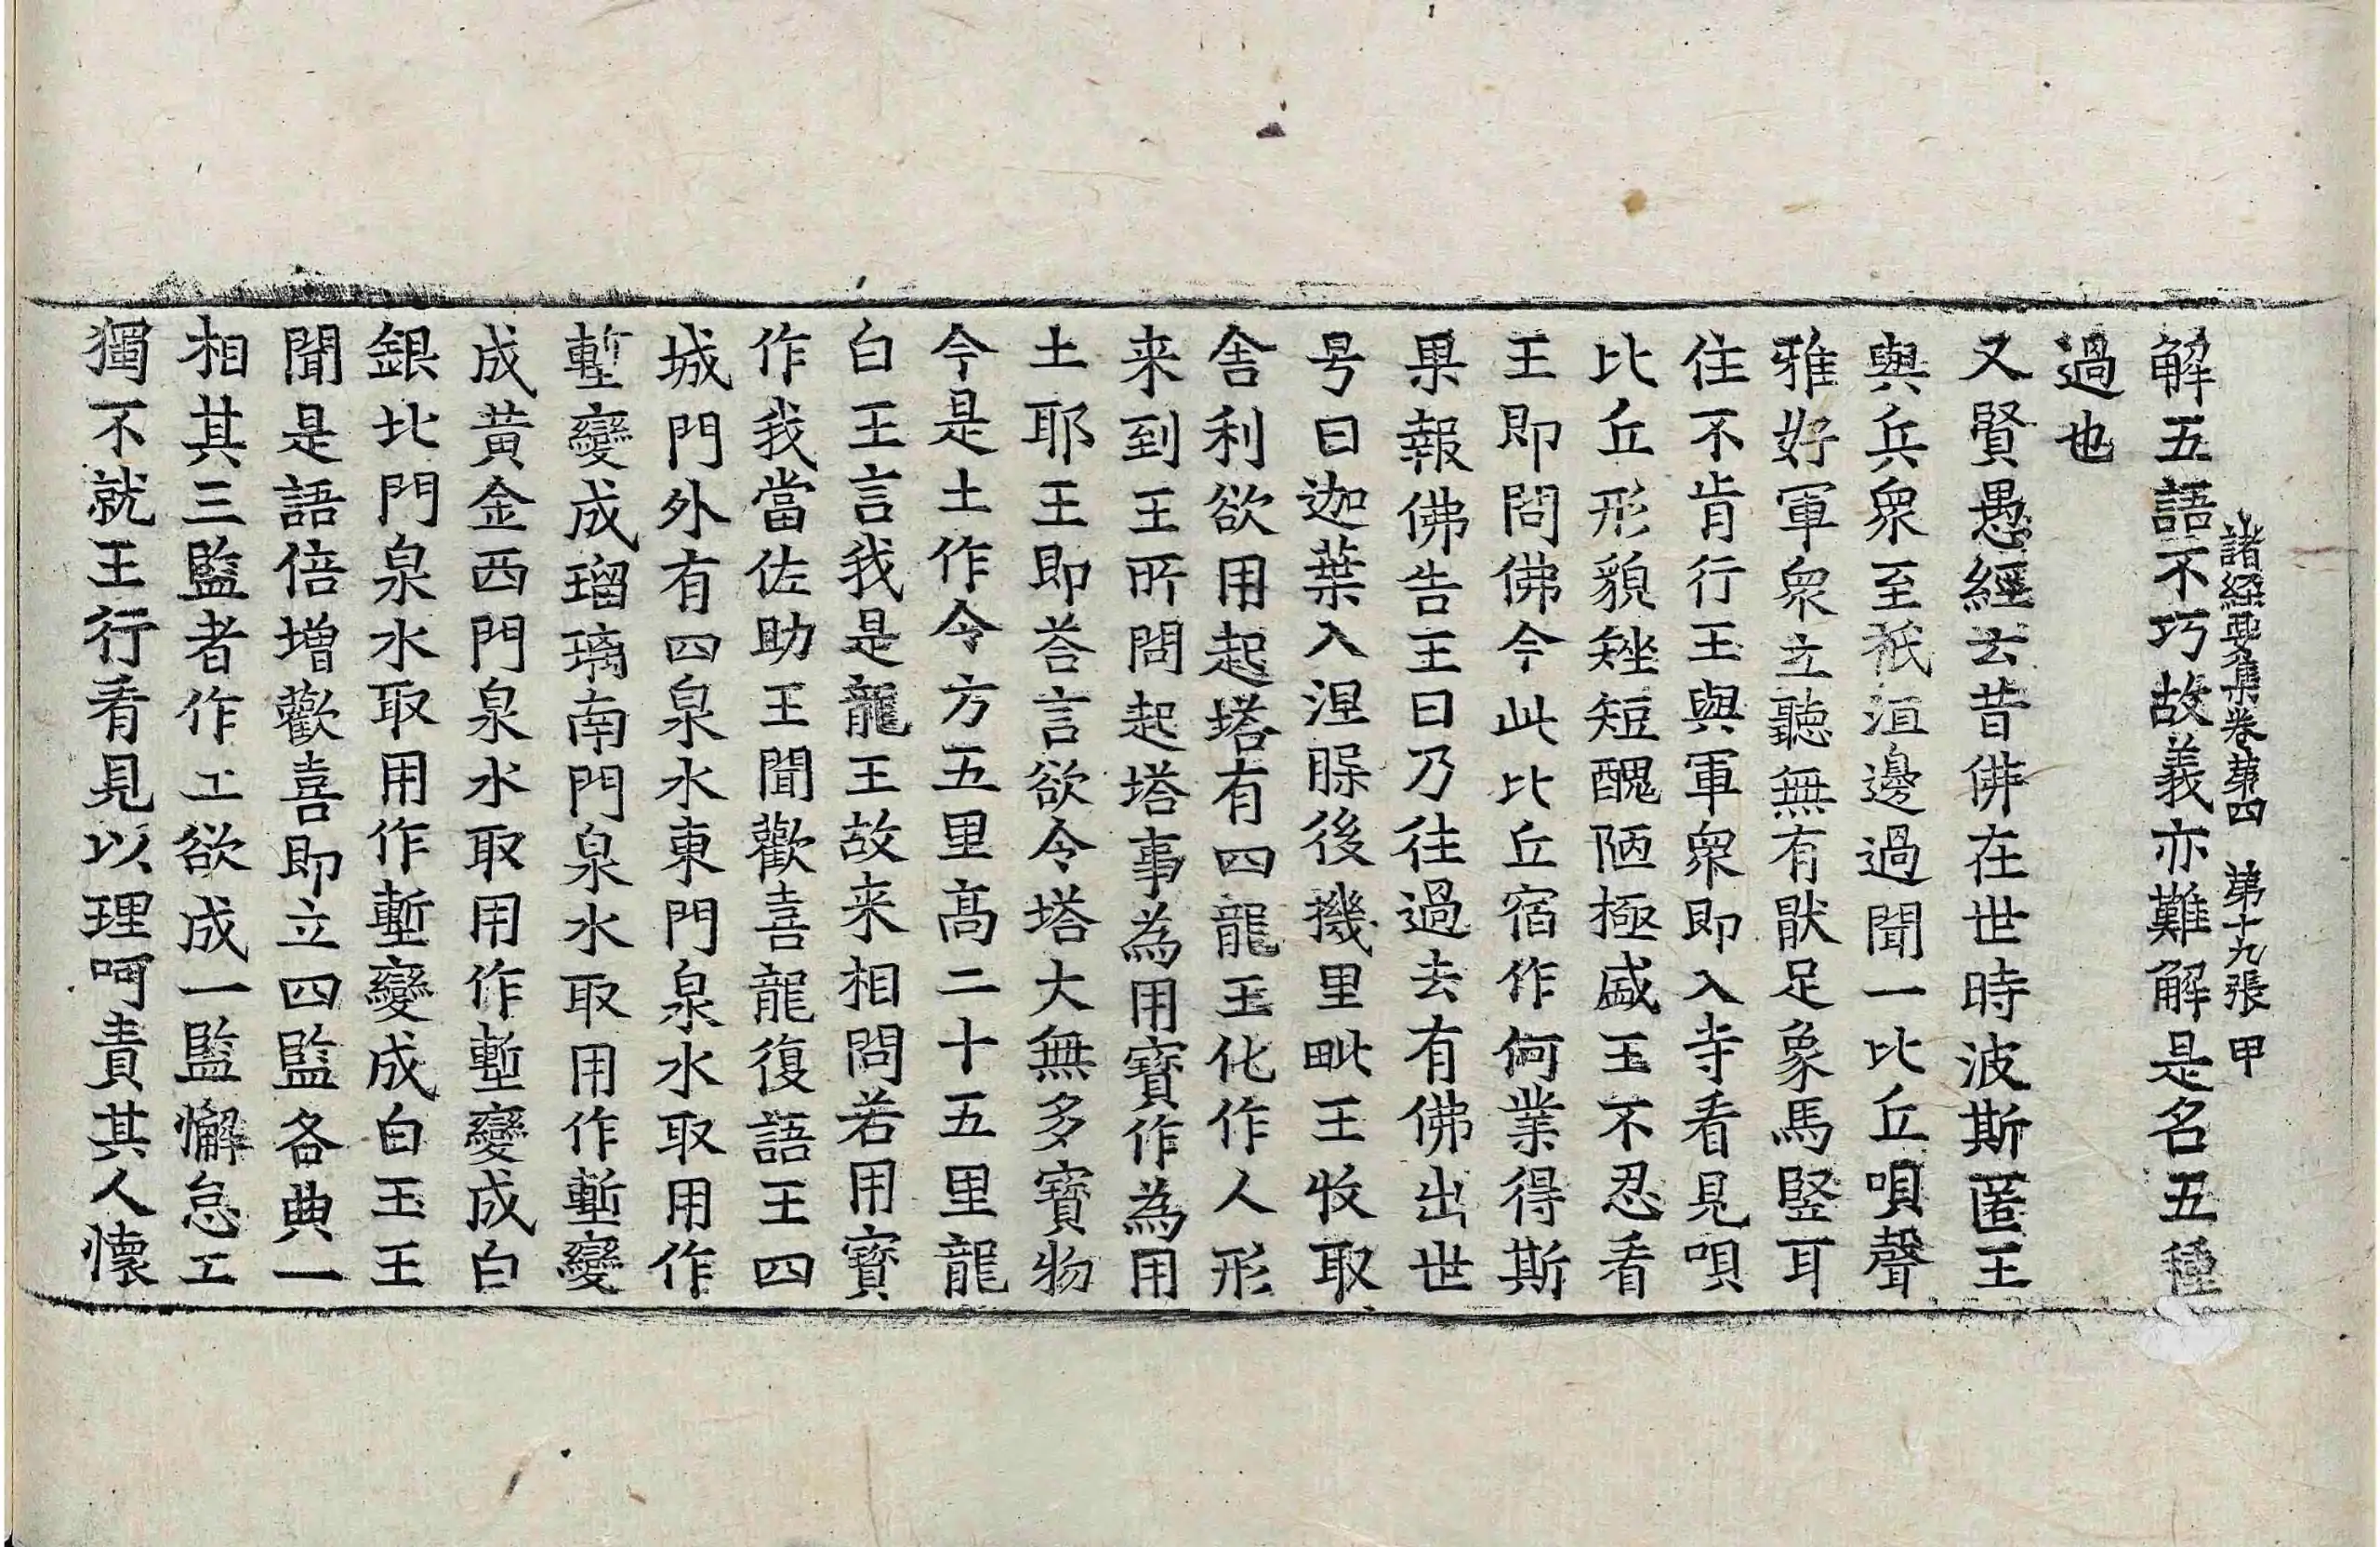 解五語不巧故義亦難解是名五種
諸經要集卷第四 第十九張 甲
過也
又賢愚經云昔佛在世時波斯匿王
與兵衆至祇洹邊過聞一比丘唄聲
雅好軍衆立聽無有猒足象馬竪耳
住不肯行王與軍衆即入寺看見唄
比丘形貌矬短醜陋極盛王不忍看
王即問佛今此比丘宿作何業得斯
果報佛告王曰乃往過去有佛出世
号曰迦葉入涅槃後機里毗王收取
舍利欲用起塔有四龍王化作人形
来到王所問起塔事為用寶作為用
土耶王即荅言欲令塔大無多寶物
今是土作令方五里髙二十五里龍
白王言我是龍王故来相問若用寶
作我當佐助王聞歡喜龍復語王四
城門外有四泉水東門泉水取用作
塹變成瑠璃南門泉水取用作塹變
成黃金西門泉水取用作塹變成白
銀北門泉水取用作塹變成白玉王
聞是語倍增歡喜即立四監各典一
相其三監者作工欲成一監懈怠工
獨不就王行看見以理呵責其人懷